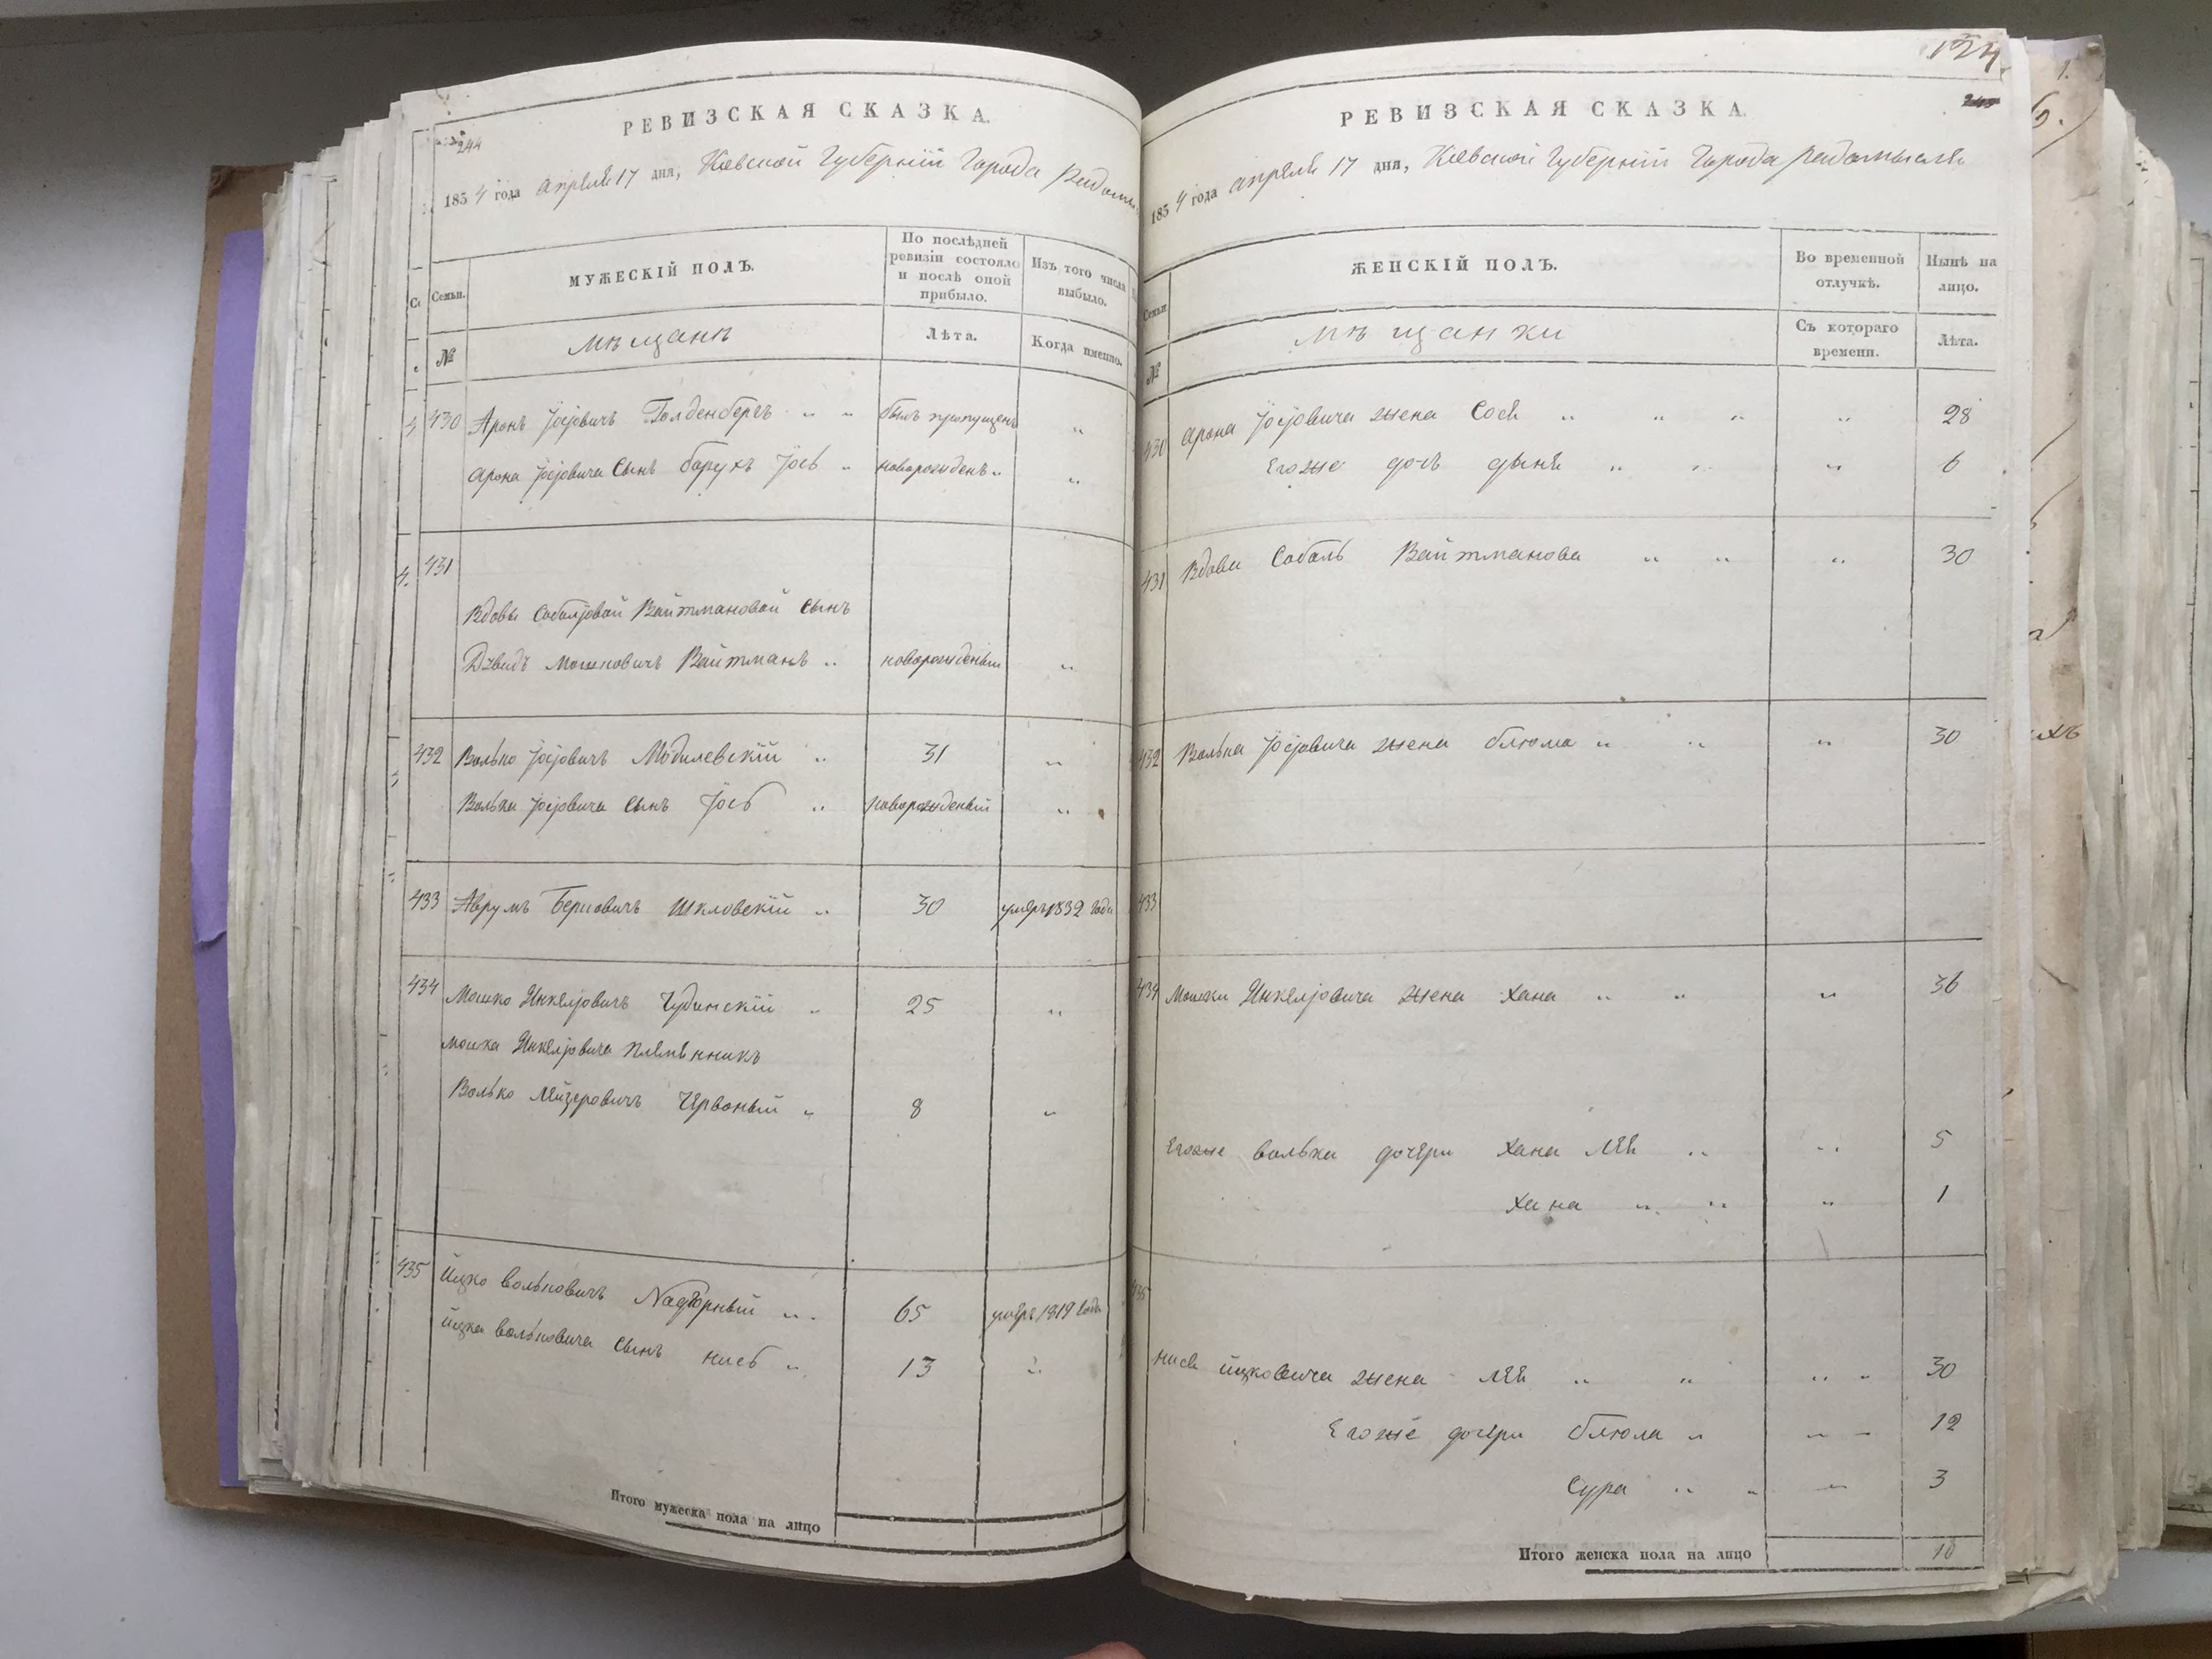 244
РЕВИЗСКАЯ СКАЗКА.
1854 года апреля 17 дня, Киевской Губерніи Города Радомы
Семьи.
МУЖЕСКІЙ ПОЛЪ.
По послѣдней ревизіи состояло и послѣ оной прибыло.
Изъ того числа выбыло.
№
мѣщанъ
Лѣта.
Когда именно.
430 Аронъ Јосјовичъ Голденбергъ " " былъ пропущенъ "
Арона Јосјовича Сынъ барухъ Јосъ " новорожденъ "
431
Вдовы Собољовой Вайтмановой Сынъ
Дувидъ Мошковичъ Вайтманъ " новорожденый "
432 Волько Јосјовичъ Могилевскій " 31 "
Волька Јосјовича Сынъ Јось " новорожденый "
433 Аврумъ Берковичъ Шкловскій " 30 умеръ 1832 года
434 Мошко Янкелјовичъ Чудинскій " 25 "
мошка Янкелјовича племѣнникъ
Волько Лейзеровичъ Червоный " 8 "
435 Ицко вольковичъ Nадгорный " 65 умеръ 1819 года
ицка вольковича Сынъ нисъ " 13 "
Итого мужеска пола на лицо
124
РЕВИЗСКАЯ СКАЗКА
1854 года апреля 17 дня, Киевской Губерніи Города Радомысля
Семьи
ЖЕНСКІЙ ПОЛЪ.
Во временной отлучкѣ.
Нынѣ на лицо.
№
мѣщанки
Съ котораго времени.
Лѣта.
430 Арона Јосјовича жена Сося " " " " 28
Егоже дочь дыня " " " 6
431 Вдова Соболь Вайтманова " " " 30
432 Волька Јосјовича жена блюма " " " 30
433
434 Мошки Янкелјовича жена хана " " " 36
Егоже волька дочери хана лея " " 5
хана " " " 1
435
нися ицковича жена лея " " " " 30
Егоже дочери блюма " " " 12
Сура " " " 3
Итого женска пола на лицо 10